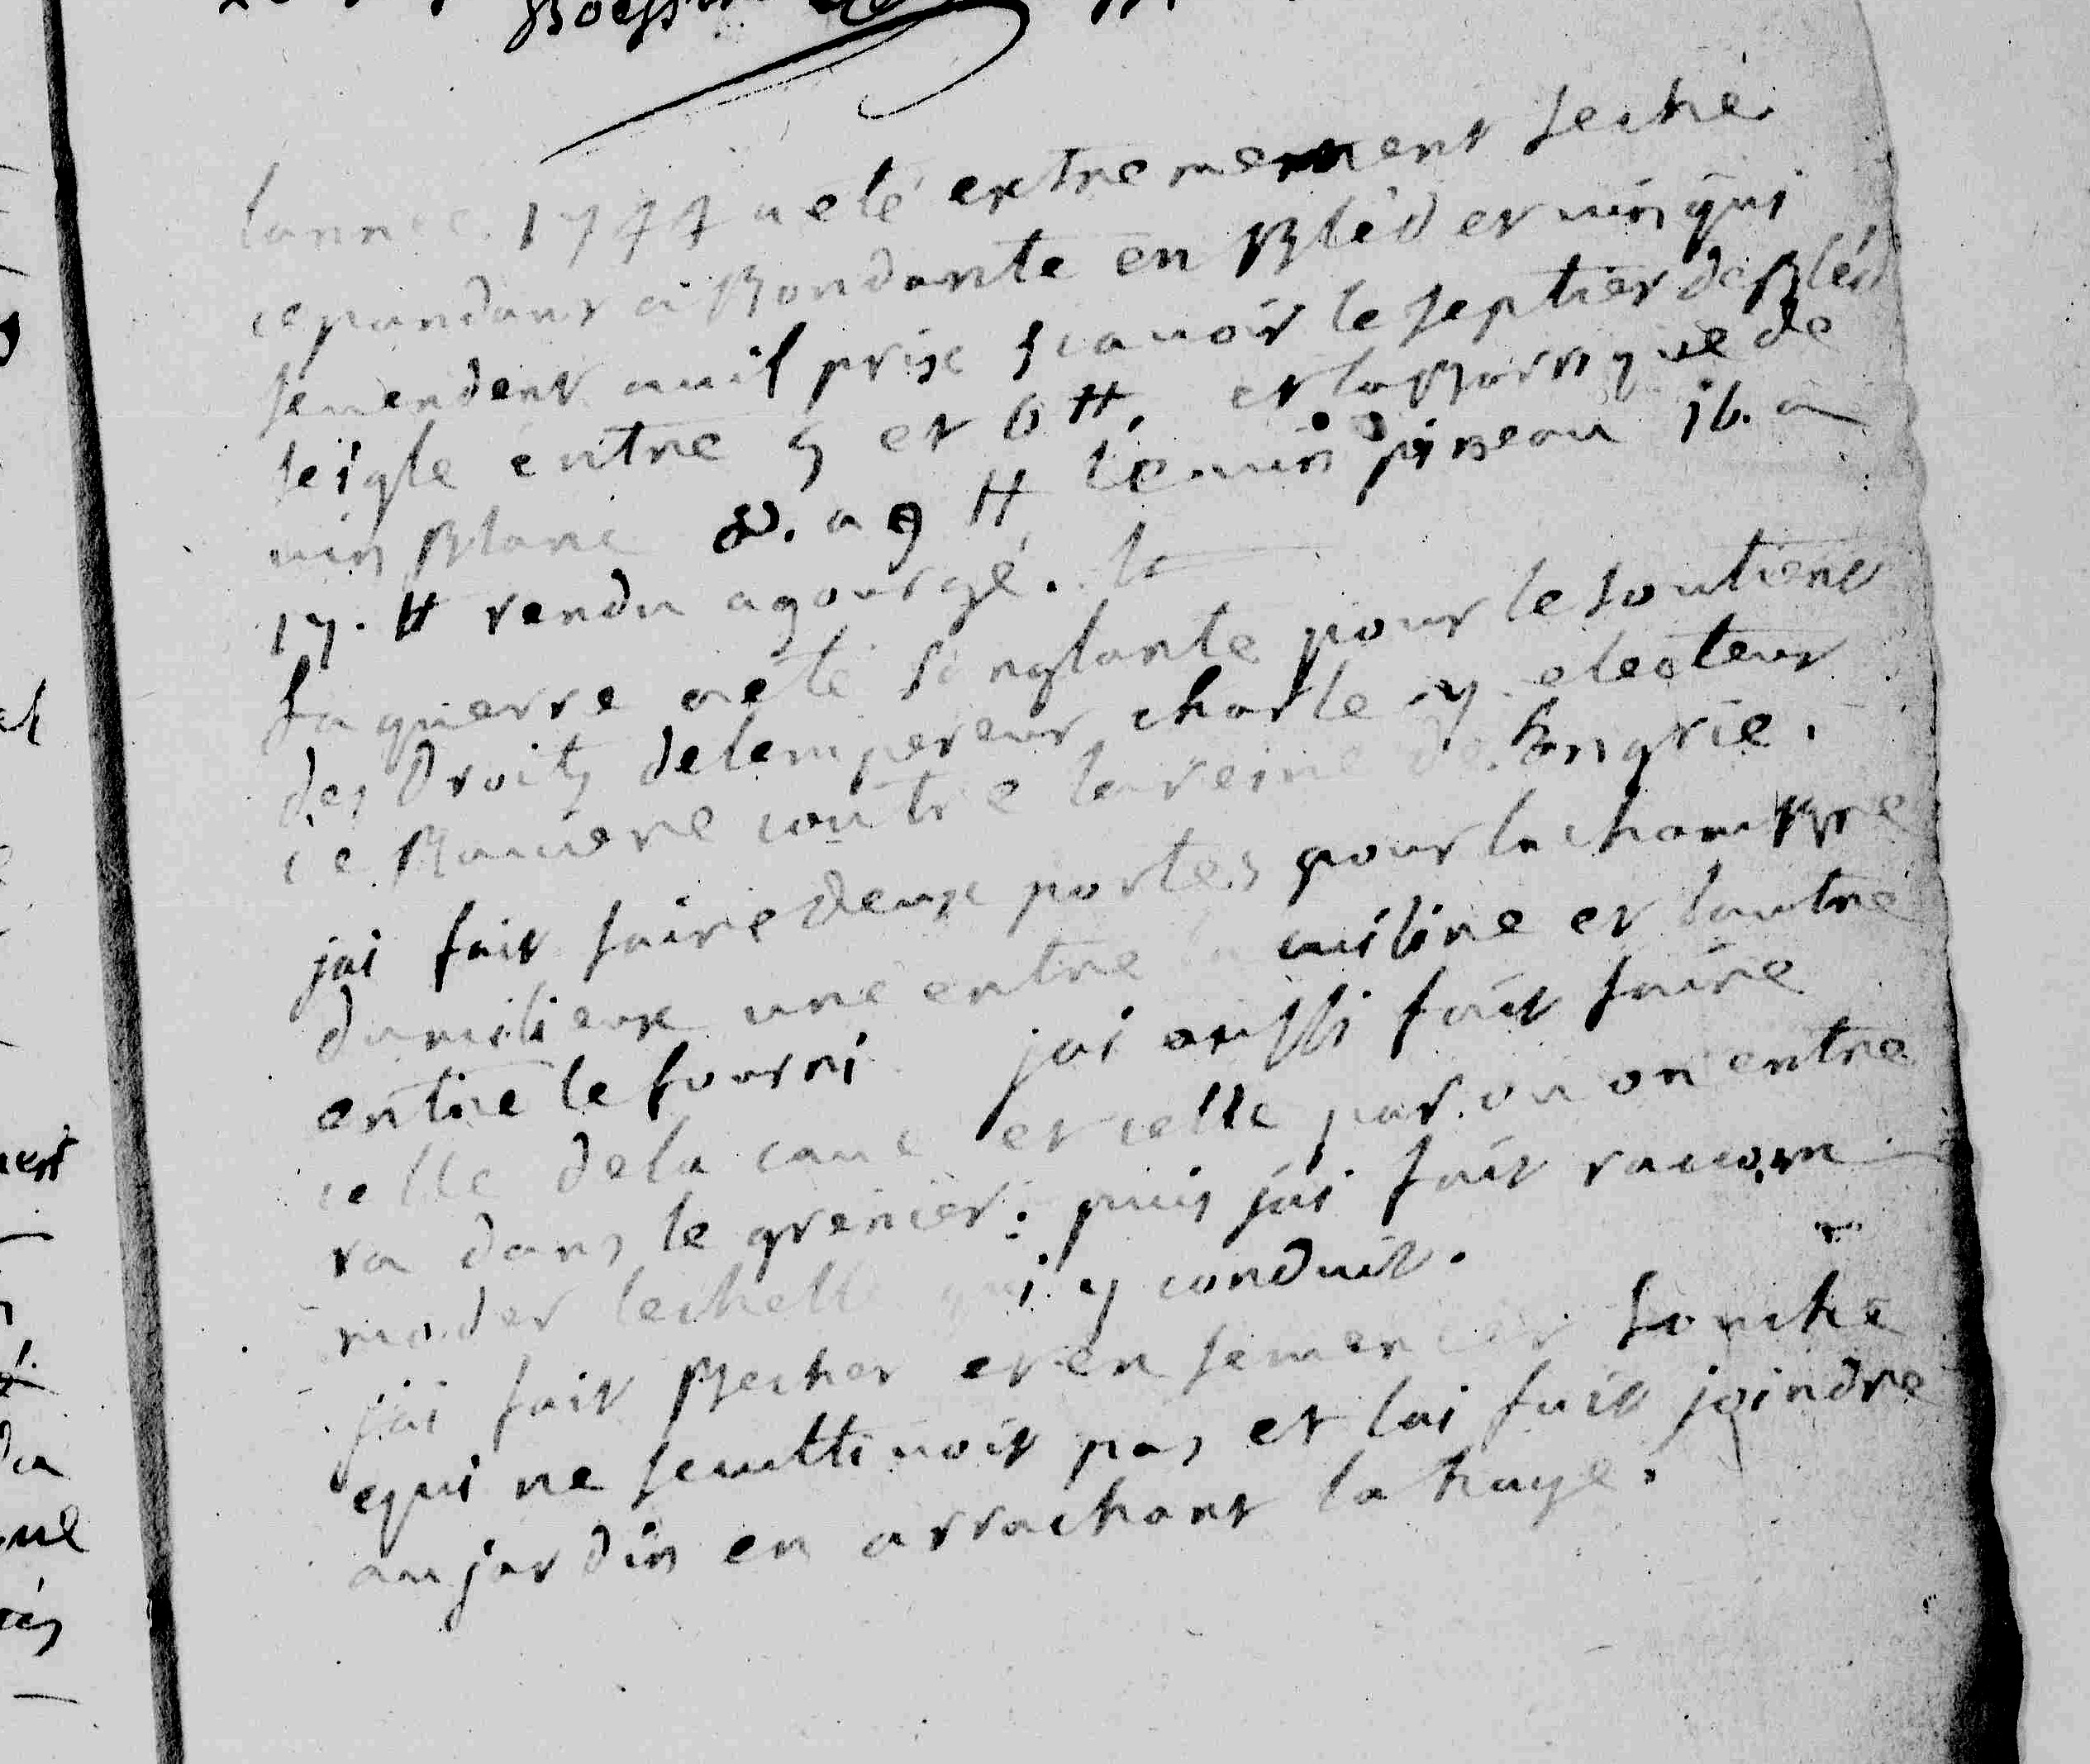 lannee 1744 a eté extremement seche
cepandant aBondante en Bléd et vin qui
se vendent a vil prix scavoir le septier de Bléd
seigle entre 5 et 6 ₶, et la Barrique de
vin Blanc 8. a 9 ₶ le vin pineau 16. a
17. ₶ rendu a gourgé. la
La guerre a eté sanglante pour le soutient
des Droits de lempereur charle 7 electeur
de Baviere contre la reine de hongrie.
jai fait faire deux portes pour la chamBre
du milieux une entre la cuisine et lautre
entre le fourni jai aussi fait faire
celle de la cave et celle par ou on entre
va dans le grenier: puis jai fait raccom
moder lechelle qui y conduit.
jai fait Becher et ensemencer louche
qui ne se cultivoit pas et lai fait joindre
au jardin en arrachant la haye.